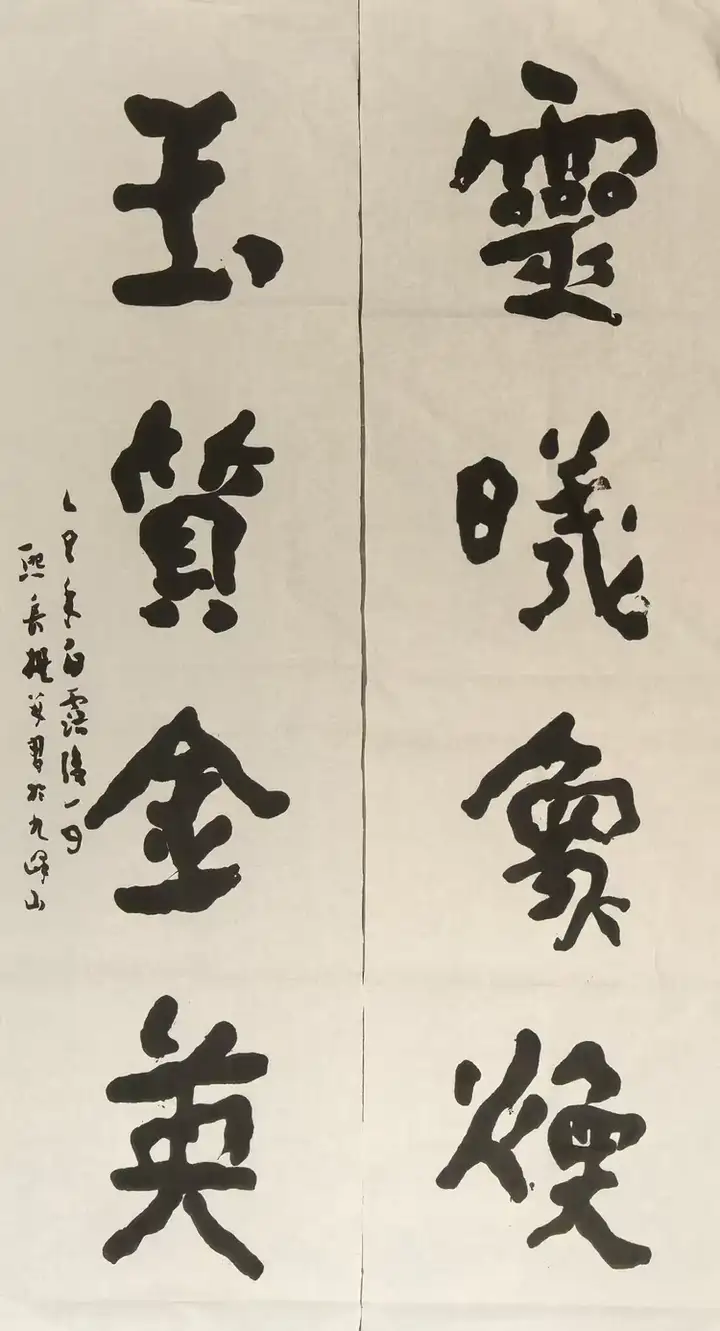 靈曦象煥
玉質金英
乙巳年白露後一日
熙長習於九峰山